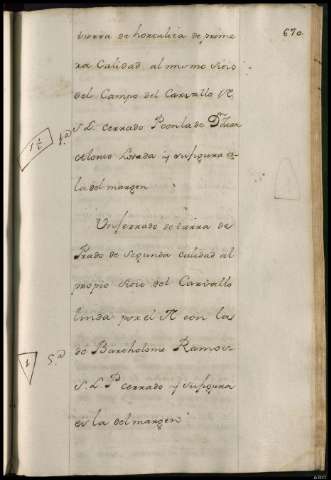 670
tierra de hortaliza de prime
ra Calidad al mismo sitio
del Campo del Carvallo N.
S. L. cerrado P. con la de Dn
Alonso Losada y su figura es
la del margen
1ª C
4ª
Un ferrado de tierra de
Prado de segunda calidad al
propio sitio del Carvallo
linda por el N. con las
de Bartholome Ramos
S. L. P. cerrado y su figura
es la del margen
1
5ª